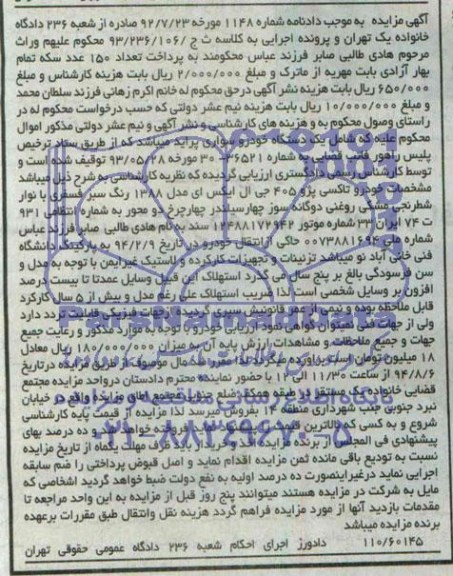 آگهی مزایده به موجب دادنامه شماره ۱۱۴۸ مورخه ۹۲/۷/۲۳ صادره از شعبه ۲۳۶ دادگاه
خانواده یک تهران و پرونده اجرایی به کلاسه ث ج /۹۳/۲۳۶/۱۰۶ محکوم علیهم وراث
مرحوم هادی طالبی صابر فرزند عباس محکومند به پرداخت تعداد ۱۵۰ عدد سکه تمام
بهار آزادی بابت مهریه از ماترک و مبلغ ۲/۰۰۰/۰۰۰ ریال بابت هزینه کارشناس و مبلغ
۶۵۰/۰۰۰ ریال بابت هزینه نشر آگهی درحق محکوم له خانم اکرم زهانی فرزند سلطان محمد
و مبلغ ۱۰/۰۰۰/۰۰۰ ریال بابت هزینه نیم عشر دولتی که حسب درخواست محکوم له در
راستای وصول محکوم به و هزینه های کارشناسی و نشر آگهی و نیم عشر دولتی مذکور اموال
محکوم علیه که شامل یک دستگاه خودرو سواری پراید میباشد که از طریق ستاد ترخیص
پلیس راهور قائب قضایی به شماره ۳۶۵۲۱ ۳۰ مورخه ۹۳/۰۵/۲۸ توقیف شده است و
توسط کارشناس رسمی دادگستری ارزیابی گردیده که نظریه کارشناسی به شرح ذیل میباشد
مشخصات خودرو تاکسی پژو ۴۰۵ جی ال ایکس ای مدل ۱۳۸۸ رنگ سبز فسفری با نوار
شطرنجی مشکی روغنی دوگانه سوز چهارسیلندر چهارچرخ دو محور به شماره انتظامی ۹۳۱
ت ۷۴ ایران ۳۳ شماره موتور ۱۲۴۸۸۱۷۲۹۴۲ سند به نام هادی طالبی صابر فرزند عباس
شماره ملی ۰۰۷۳۸۸۱۶۹۴ حاکی ازانتقال خودرو در تاریخ ۹۴/۲/۹ به پارکینگ دانشگاه
فنی خانی آباد نو میباشد تزئینات و تجهیزات کارکرده و لاستیک غیرایمن با توجه به مدل و
سن فرسودگی بالغ بر پنج سال می گذرد استهلاک این قبیل وسایل عمدتا تا بیست درصد
افزون بر وسایل شخصی است لذا ضریب استهلاک علی رغم مدل و بیش از ۵ سال کارکرد
قابل ملاحظه بوده و نیمی از عمر قانونیش سپری گردیده ازجهات فیزیکی قابلیت تردد دارد
ولی از جهات فنی نمیتوان گواهی نمود ارزیابی خودرو با توجه به موارد مذکور و رعایت جمیع
جهات و جمیع ملاحظات و مشاهدات ارزش پایه آن به میزان ۱۸۰/۰۰۰/۰۰۰ ریال معادل
۱۸ میلیون تومان اساسا براورده میگردد لذا مقرر شد مال موصوف از طریق مزایده درتاریخ
۹۴/۸/۶ از ساعت ۱۱/۳۰ الی ۱۲ با حضور نماینده محترم دادستان درواحد مزایده مجتمع
قضایی خانواده یک مستقر در طبقه همکف ضلع جنوبی مجتمع اتاق مزایده واقع در خیابان
نبرد جنوبی جنب شهرداری منطقه ۱۴ بفروش میرسد لذا مزایده از قیمت پایه کارشناسی
شروع و به کسی که بالاترین قیمت را پیشنهاد نماید فروخته خواهد شد و ده درصد بهای
پیشنهادی فی المجلس از برنده مزایده اخذ خریدار باید ظرف مهلت یکماه از تاریخ مزایده
نسبت به تودیع باقی مانده ثمن مزایده اقدام نماید و اصل قبوض پرداختی را ضم سابقه
اجرایی نماید درغیراینصورت ده درصد اولیه به نفع دولت ضبط خواهد گردید اشخاصی که
مایل به شرکت در مزایده هستند میتوانند پنج روز قبل از مزایده به این واحد مراجعه تا
مقدمات بازدید آنها از مورد مزایده فراهم گردد هزینه نقل وانتقال طبق مقررات برعهده
برنده مزایده میباشد
۱۱۰/۶۰۱۴۵ دادورز اجرای احکام شعبه ۲۳۶ دادگاه عمومی حقوقی تهران
۰۲۱-۸۸۳۴۹۶۷۰-۵